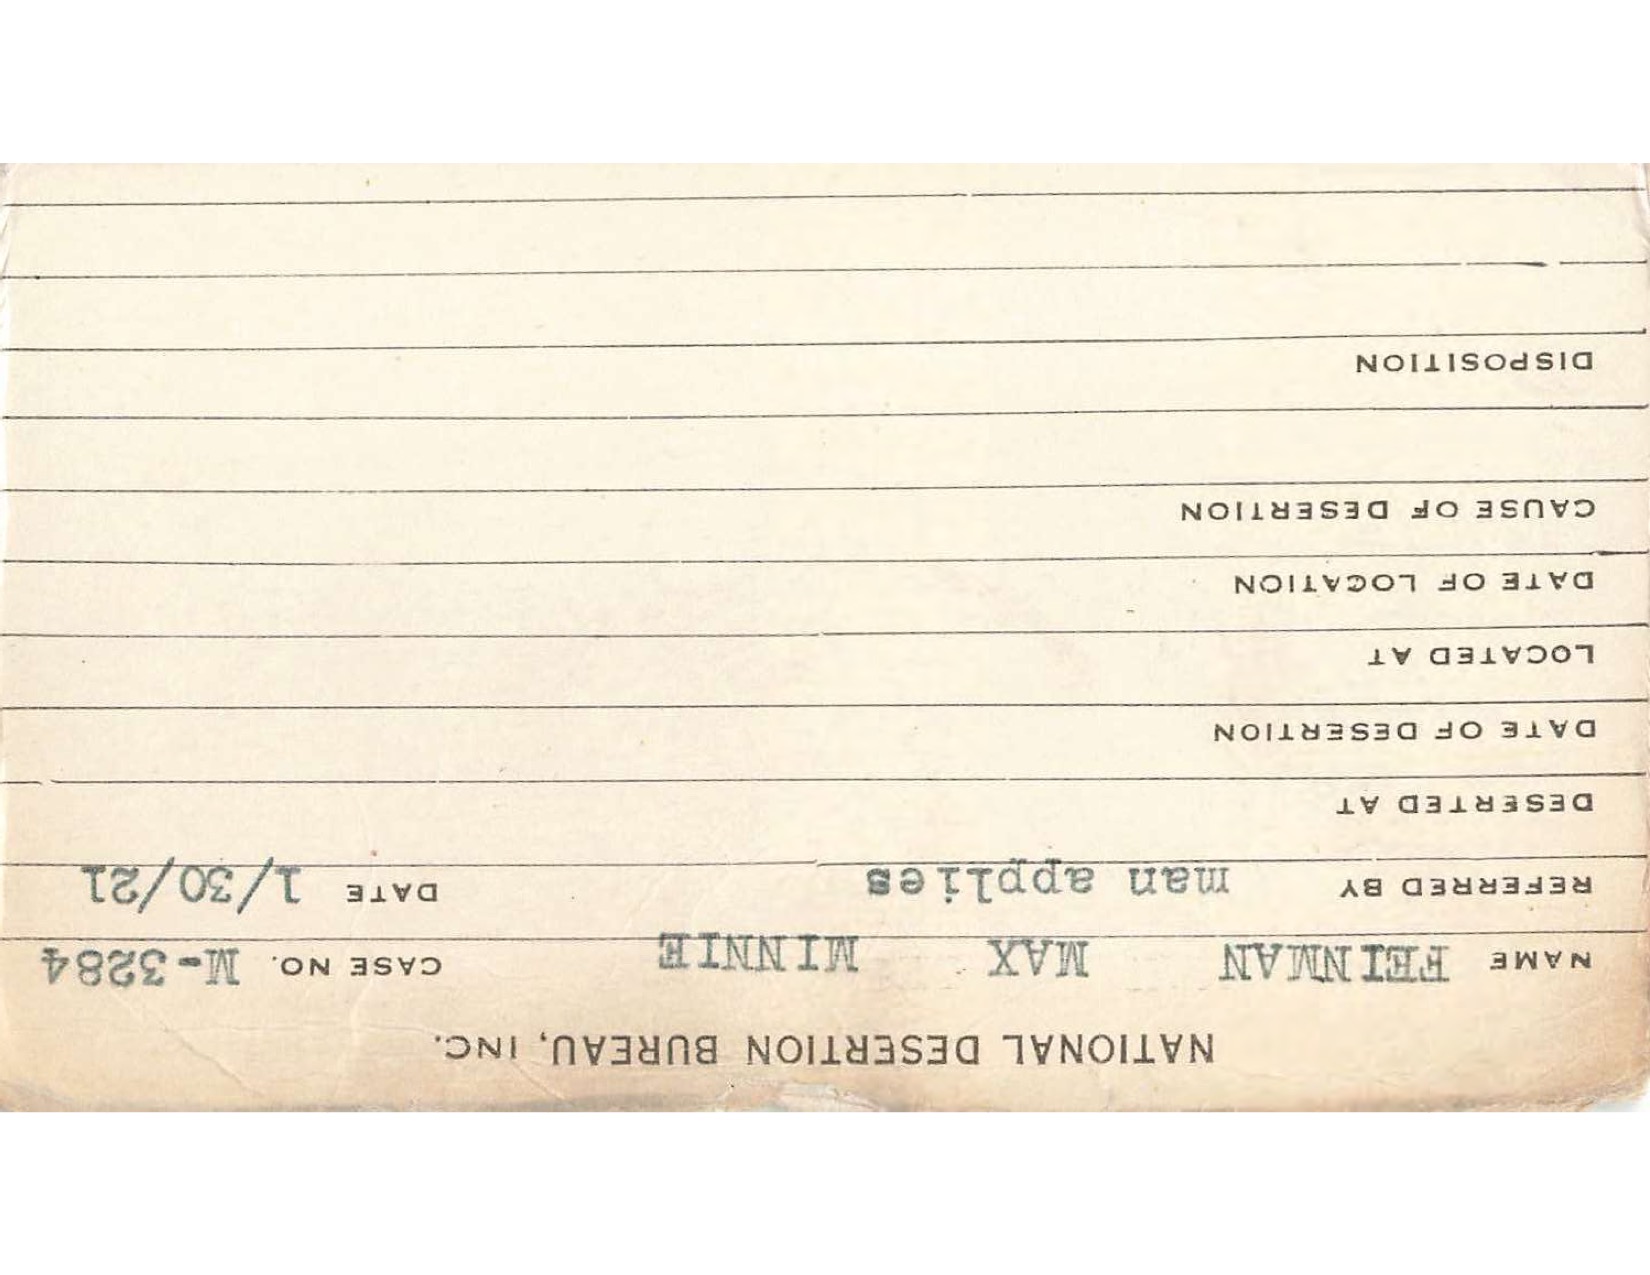 NATIONAL DESERTION BUREAU, INC.
NAME FEINMAN MAX MINNIE CASE NO. M-3284
REFERRED BY man applies DATE 1/30/21
DESERTED AT
DATE OF DESERTION
LOCATED AT
DATE OF LOCATION
CAUSE OF DESERTION
DISPOSITION